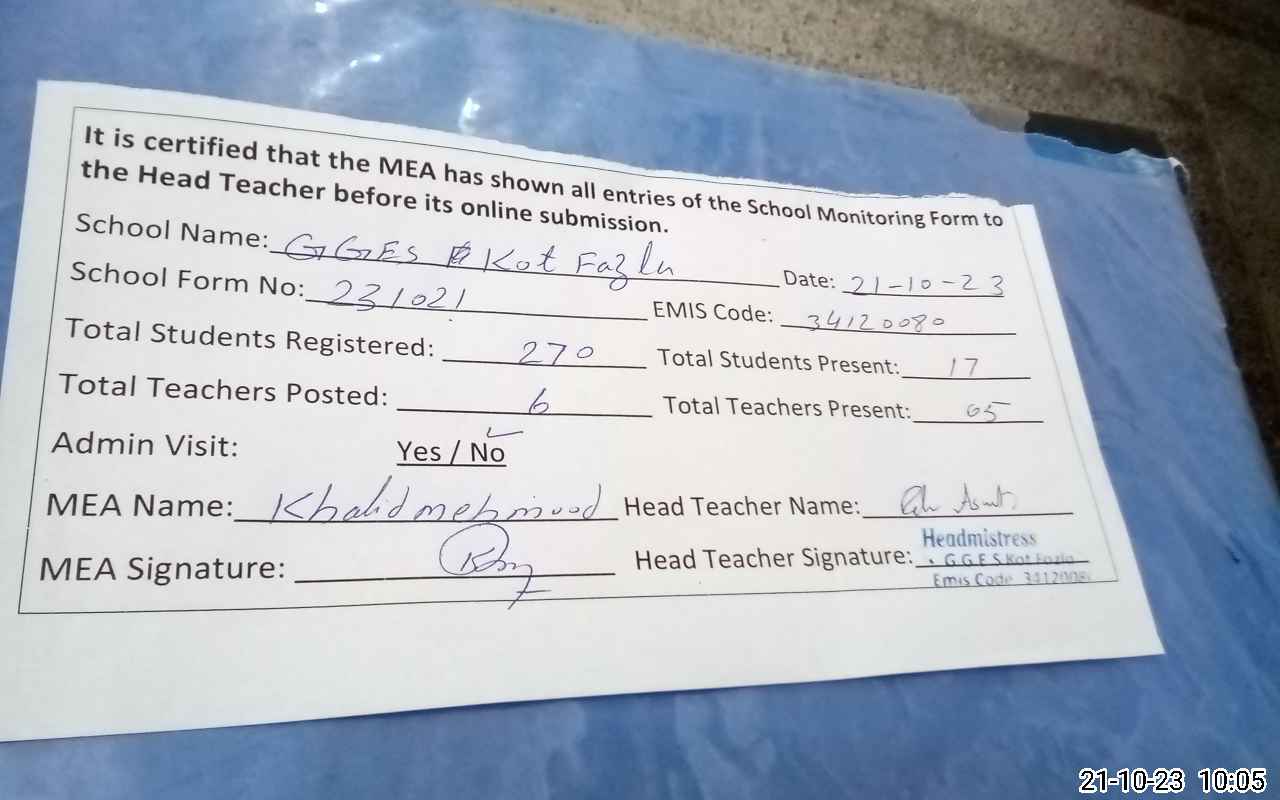 It is certified that the MEA has shown all entries of the School Monitoring Form to
the Head Teacher before its online submission.
School Name: GGES Kot Fazla Date: 21-10-23
School Form No: 231021 EMIS Code: 34120080
Total Students Registered: 270 Total Students Present: 17
Total Teachers Posted: 6 Total Teachers Present: 05
Admin Visit: Yes / No
MEA Name: Khalid mehmood Head Teacher Name:
MEA Signature: Head Teacher Signature:
Headmistress
G.G.E.S Kot Fazla
Emis Code 3412008
21-10-23 10:05